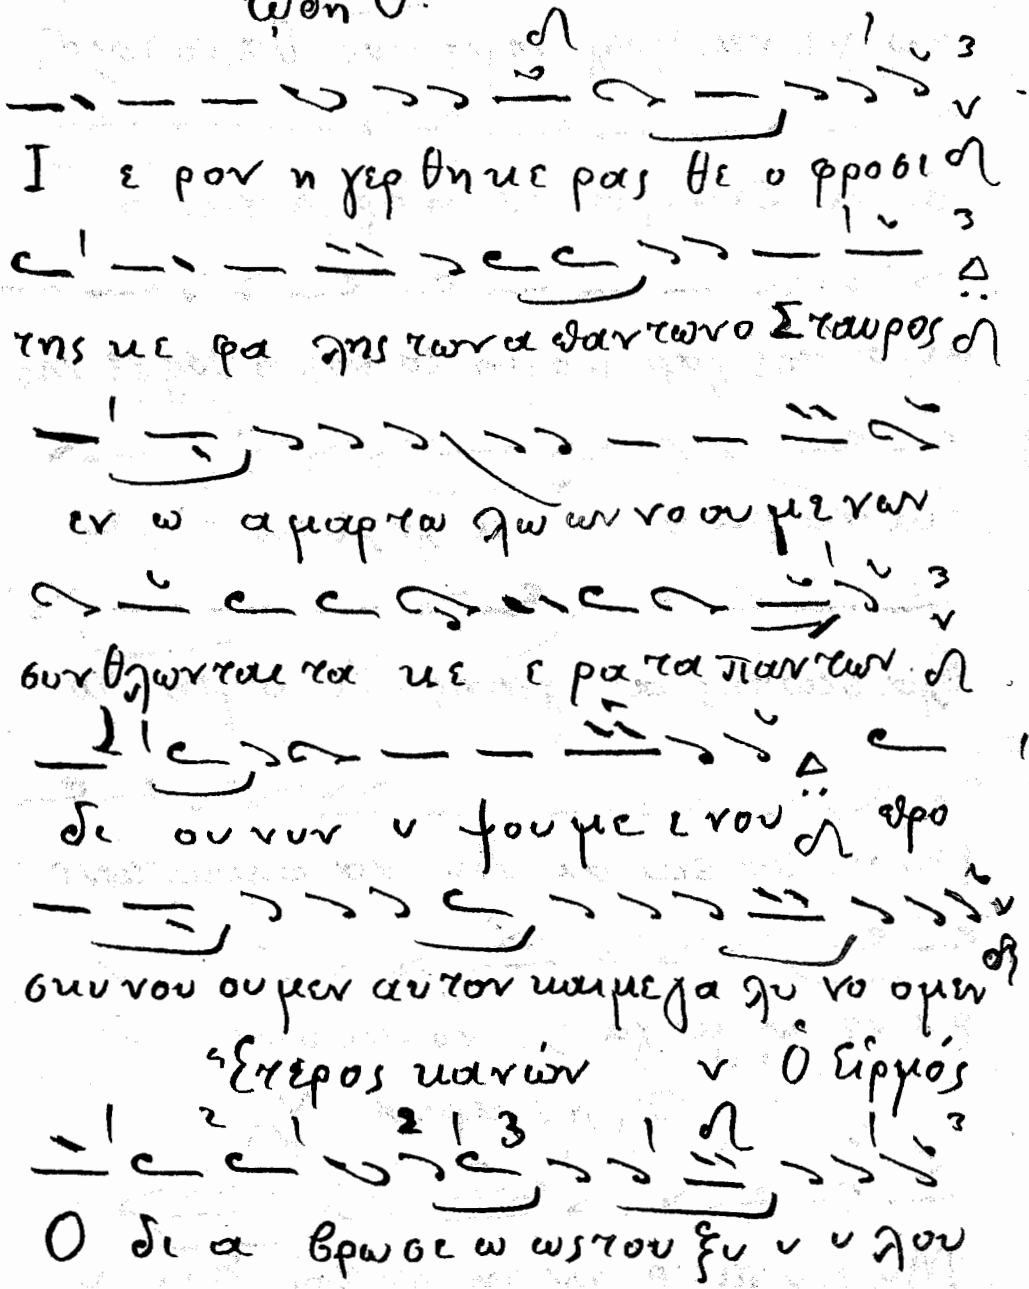 ῳδη θ.
Ι ε ρον η γερ θη κε ρας θε ο φροσι
της κε φα λης των α παν των ο Σταυρος
εν ω α μαρ τω λω ων νο ου με νων
συν θλων ται τα κε ε ρα τα παν των
δι ου νυν υ ψου με ε νου προ
σκυ νου ου μεν αυ τον και με γα λυ νο ο μεν
Ἕτερος κανών ν Ὁ Εἱρμός
Ο δι α βρω σε ω ως του ξυ υ υ λου